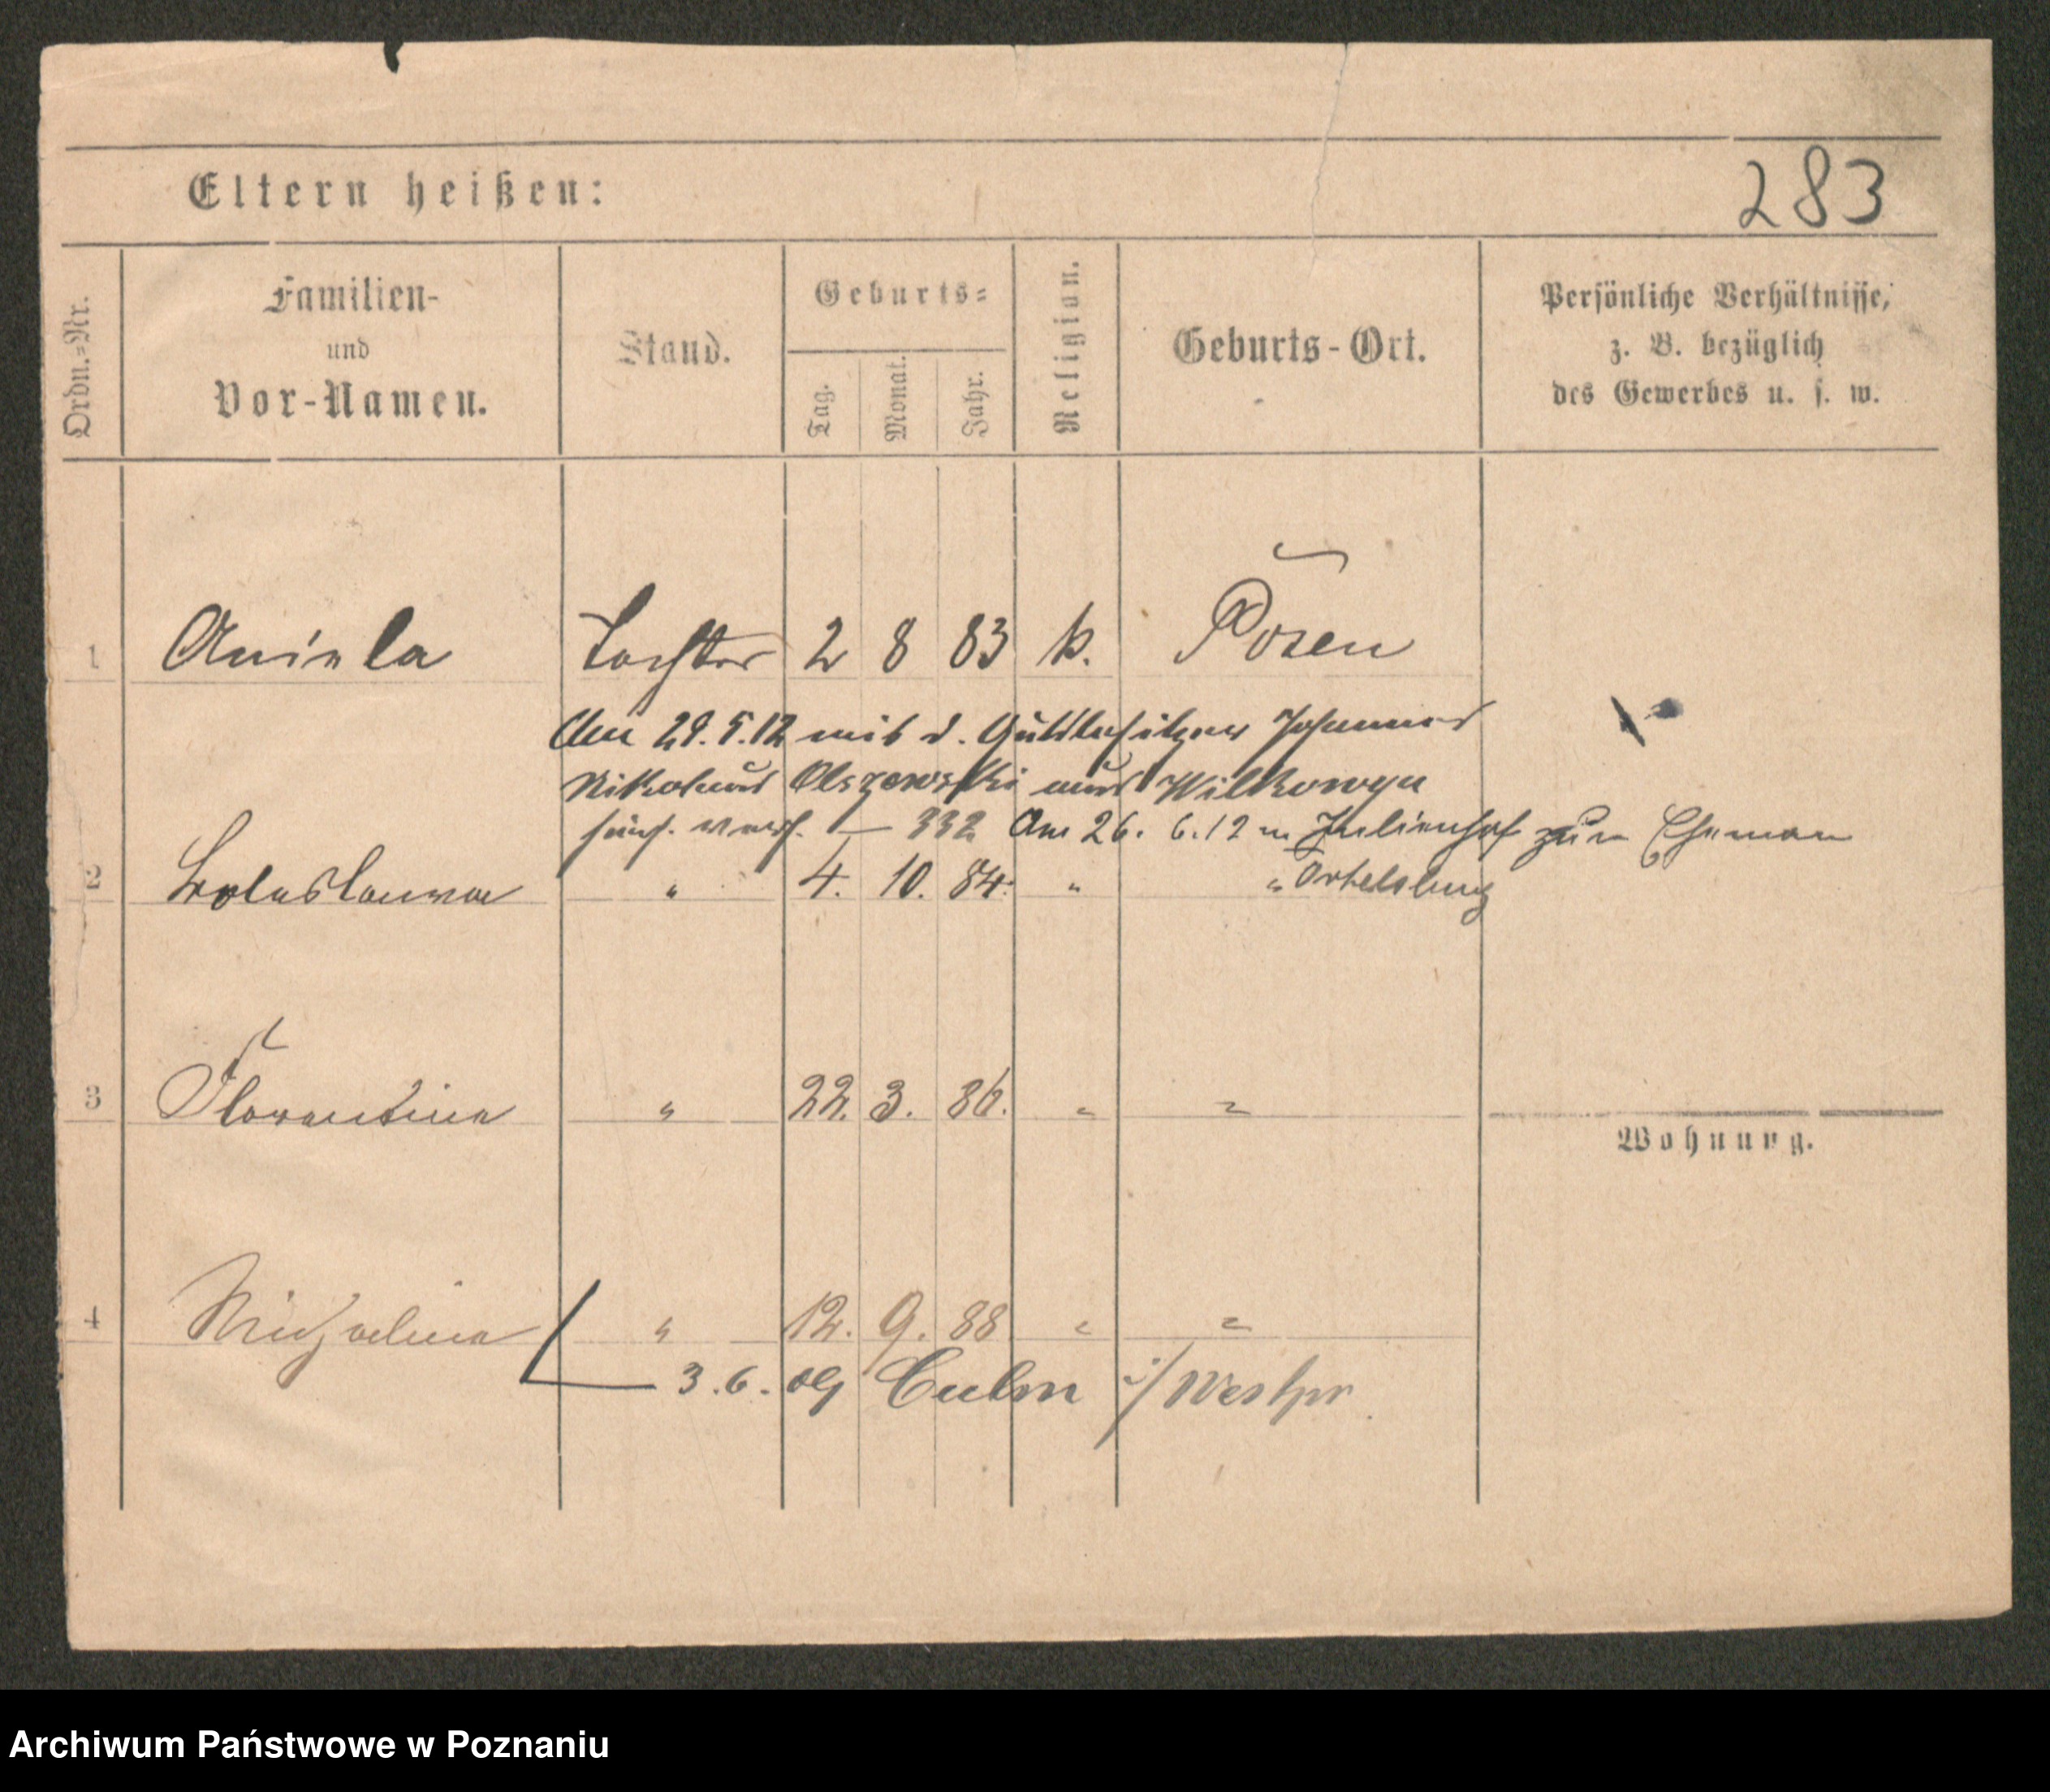 Eltern heißen:
283
Ordn.-Nr.
Familien-
und
Vor-Namen.
Stand.
Geburts-
Tag.
Monat.
Jahr.
Religion.
Geburts-Ort.
Persönliche Verhältnisse,
z. B. bezüglich
des Gewerbes u. s. w.
1 Aniela Tochter 2 8 83 k. Posen
Am 29.5.12 mit d. Gutsbesitzer Johannes
Nikolaus Olszewski aus Wilkowya
332 Am 26. 6.12 n. Julienhof zum Ehemann
2 Boleslawa " 4. 10. 84. " " Ortelsburg
3 Florentina " 22. 3. 86. " "
Wohnung.
4 Michalina " 12. 9. 88 " "
3.6.09 Culm i/Westpr.
Archiwum Państwowe w Poznaniu